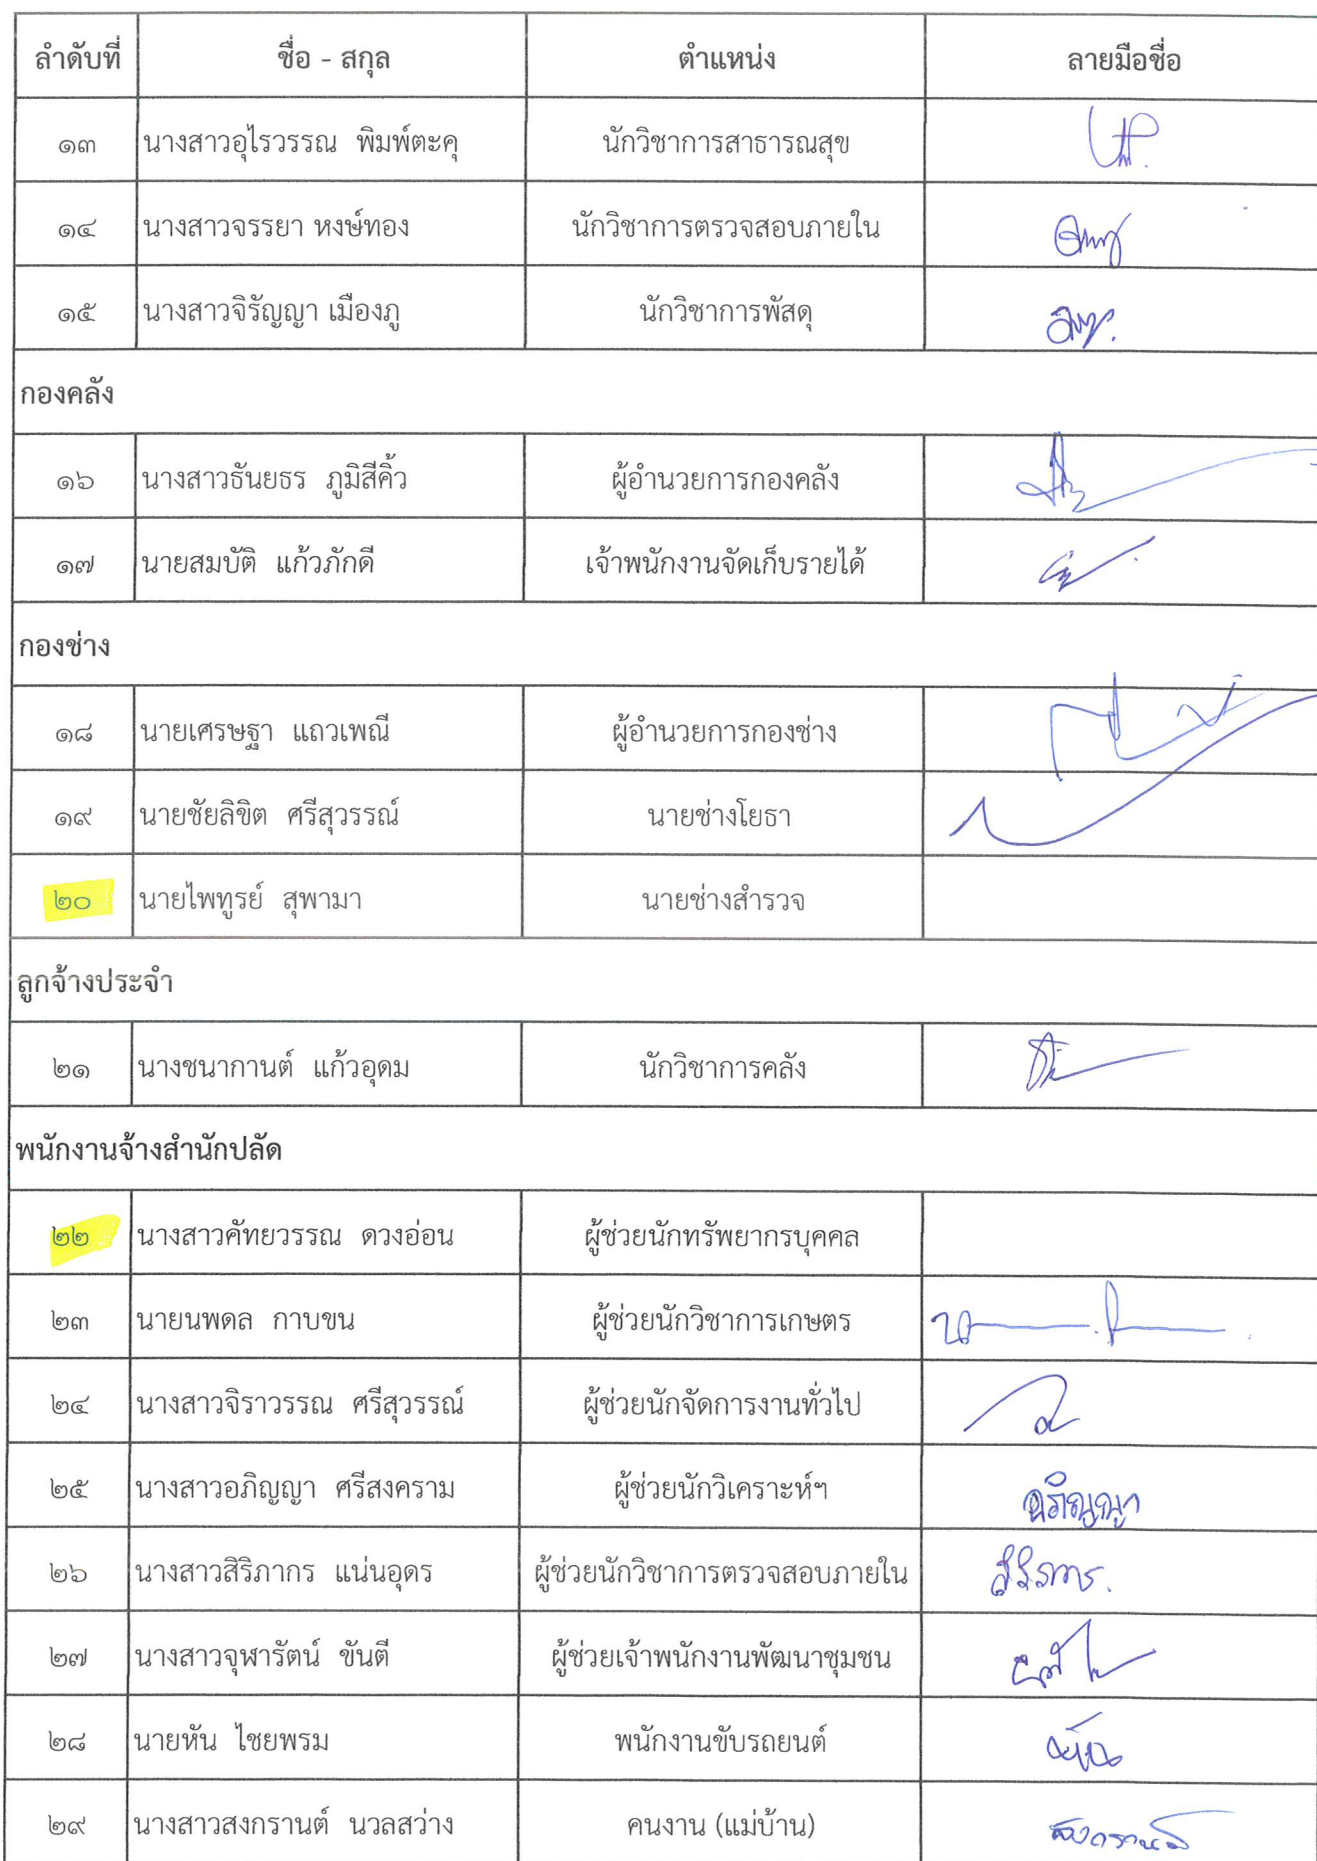 ลำดับที่ ชื่อ - สกุล ตำแหน่ง ลายมือชื่อ
๑๓ นางสาวอุไรวรรณ พิมพ์ตะคุ นักวิชาการสาธารณสุข
๑๔ นางสาวจรรยา หงษ์ทอง นักวิชาการตรวจสอบภายใน
๑๕ นางสาวจิรัญญา เมืองภู นักวิชาการพัสดุ
กองคลัง
๑๖ นางสาวธันยธร ภูมิสีคิ้ว ผู้อำนวยการกองคลัง
๑๗ นายสมบัติ แก้วภักดี เจ้าพนักงานจัดเก็บรายได้
กองช่าง
๑๘ นายเศรษฐา แถวเพณี ผู้อำนวยการกองช่าง
๑๙ นายชัยลิขิต ศรีสุวรรณ์ นายช่างโยธา
๒๐ นายไพทูรย์ สุพามา นายช่างสำรวจ
ลูกจ้างประจำ
๒๑ นางชนากานต์ แก้วอุดม นักวิชาการคลัง
พนักงานจ้างสำนักปลัด
๒๒ นางสาวคัทยวรรณ ดวงอ่อน ผู้ช่วยนักทรัพยากรบุคคล
๒๓ นายนพดล กาบขน ผู้ช่วยนักวิชาการเกษตร
๒๔ นางสาวจิราวรรณ ศรีสุวรรณ์ ผู้ช่วยนักจัดการงานทั่วไป
๒๕ นางสาวอภิญญา ศรีสงคราม ผู้ช่วยนักวิเคราะห์ฯ อภิญญา
๒๖ นางสาวสิริภากร แน่นอุดร ผู้ช่วยนักวิชาการตรวจสอบภายใน สิริภากร.
๒๗ นางสาวจุฬารัตน์ ขันตี ผู้ช่วยเจ้าพนักงานพัฒนาชุมชน
๒๘ นายหัน ไชยพรม พนักงานขับรถยนต์ หัน
๒๙ นางสาวสงกรานต์ นวลสว่าง คนงาน (แม่บ้าน) สงกรานต์